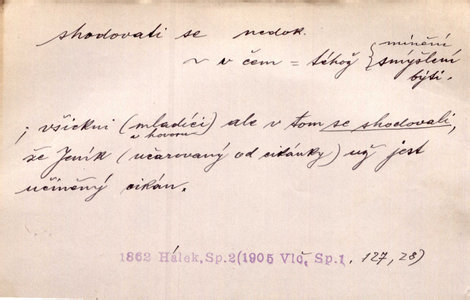 shodovati se nedok.
mínění
~ v čem = téhož { smýšlení
býti.
; všickni (mladíci) ale v tom se shodovali,
v hovoru
že Jeník (učarovaný od cikánky) už jest
učiněný cikán.
1862 Hálek, Sp.2(1905 Vlč, Sp.1, 127, 28)